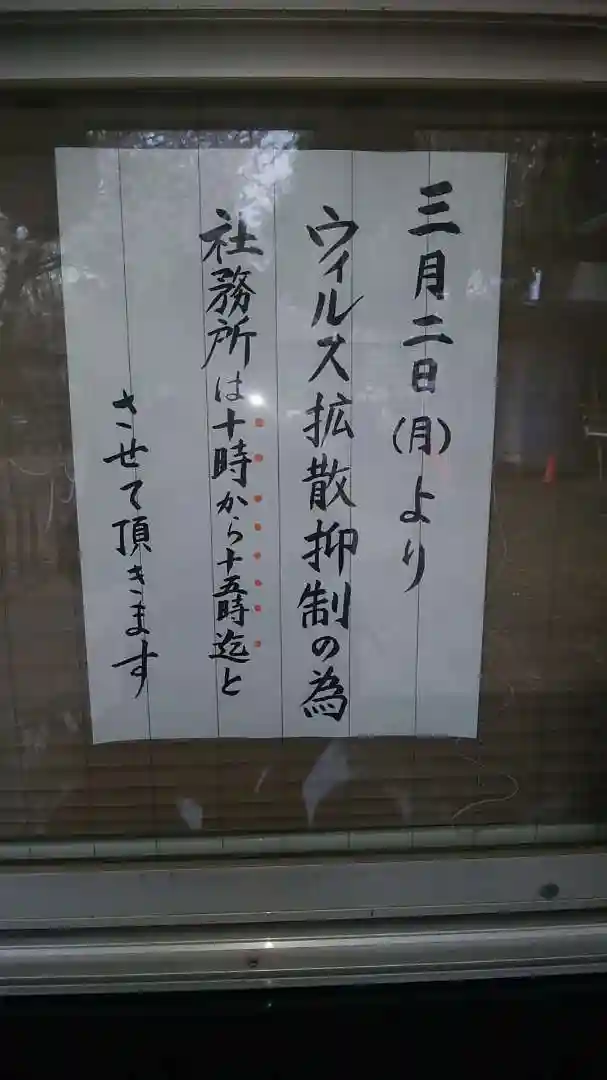 三月二日(月)より
ウィルス拡散抑制の為
社務所は十時から十五時迄と
させて頂きます